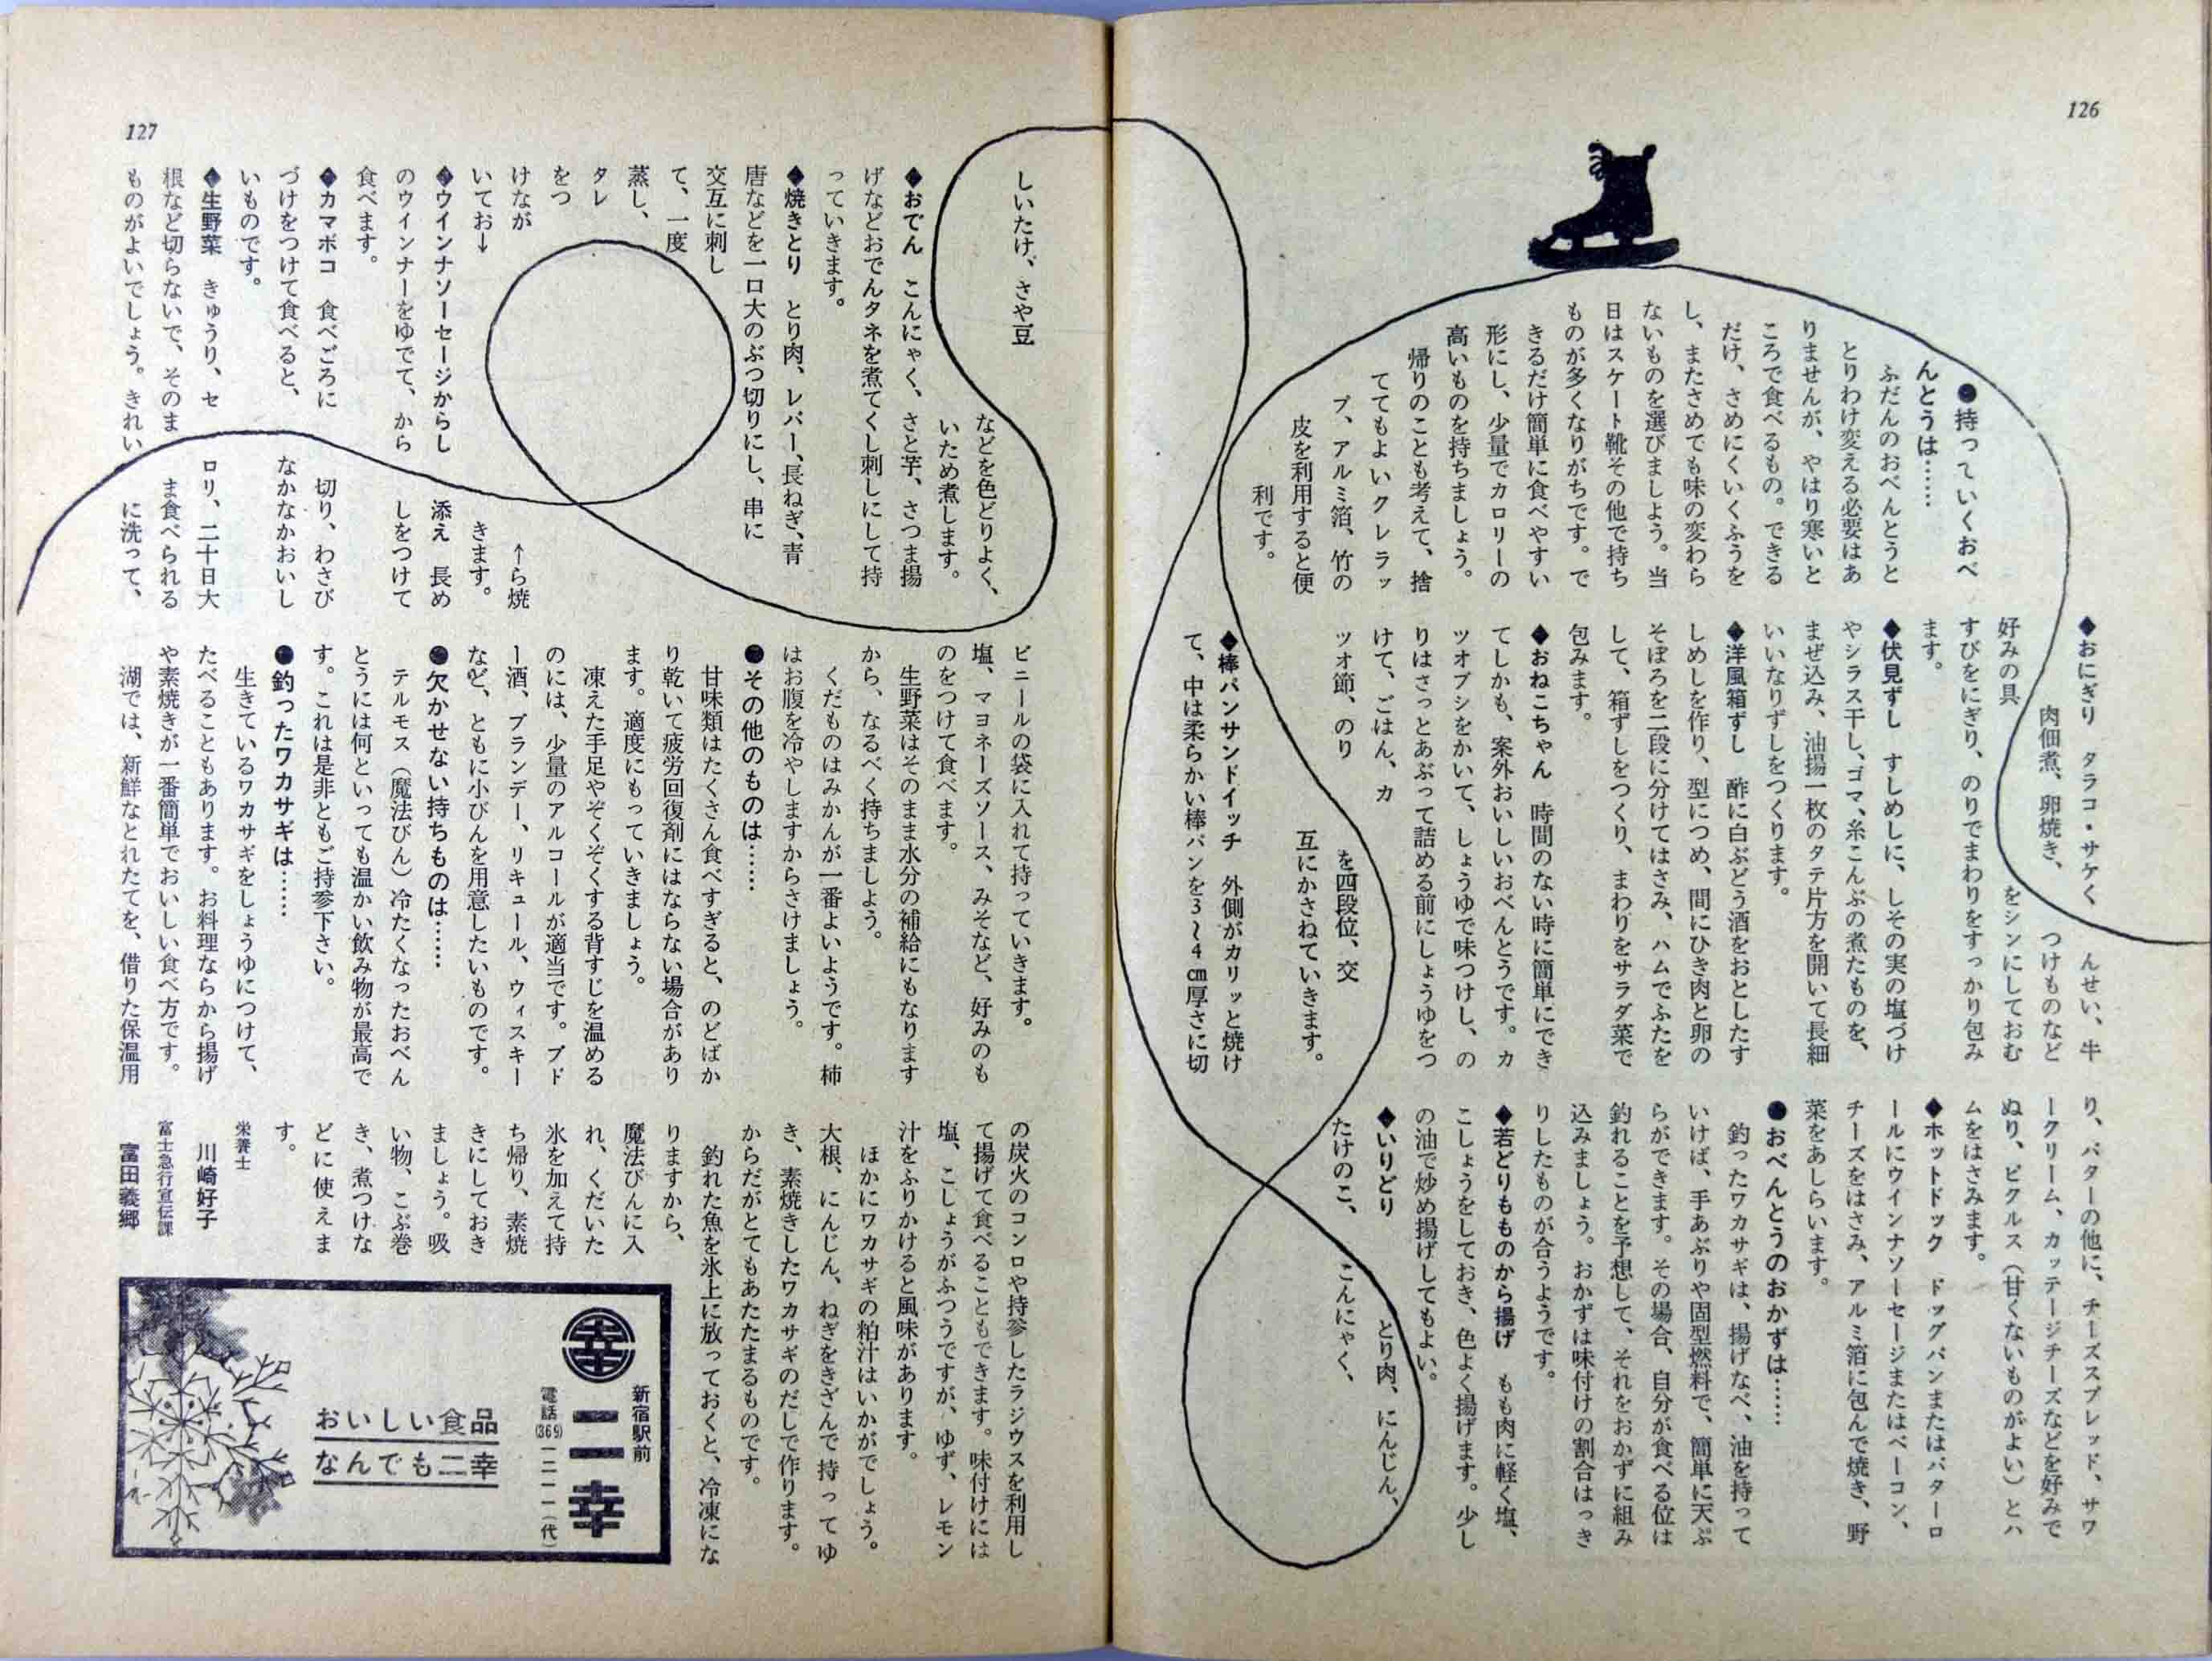 126
●持っていくおべ
んとうは……
ふだんのおべんとうと
とりわけ変える必要はあ
りませんが、やはり寒いと
ころで食べるもの。できる
だけ、さめにくいくふうを
し、またさめても味の変わら
ないものを選びましょう。当
日はスケート靴その他で持ち
ものが多くなりがちです。で
きるだけ簡単に食べやすい
形にし、少量でカロリーの
高いものを持ちましょう。
帰りのことも考えて、捨
ててもよいクレラッ
プ、アルミ箔、竹の
皮を利用すると便
利です。
◆おにぎり　タラコ・サケく　んせい、牛
肉佃煮、卵焼き、　つけものなど
好みの具　をシンにしておむ
すびをにぎり、のりでまわりをすっかり包み
ます。
◆伏見ずし　すしめしに、しその実の塩づけ
やシラス干し、ゴマ、糸こんぶの煮たものを、
まぜ込み、油揚一枚のタテ片方を開いて長細
いいなりずしをつくります。
◆洋風箱ずし　酢に白ぶどう酒をおとしたす
しめしを作り、型につめ、間にひき肉と卵の
そぼろを二段に分けてはさみ、ハムでふたを
して、箱ずしをつくり、まわりをサラダ菜で
包みます。
◆おねこちゃん　時間のない時に簡単にでき
てしかも、案外おいしいおべんとうです。カ
ツオブシをかいて、しょうゆで味つけし、の
りはさっとあぶって詰める前にしょうゆをつ
けて、ごはん、カ
ツオ節、のり　を四段位、交
互にかさねていきます。
◆棒パンサンドイッチ　外側がカリッと焼け
て、中は柔らかい棒パンを3〜4㎝厚さに切
り、バターの他に、チーズスプレッド、サワ
ークリーム、カッテージチーズなどを好みで
ぬり、ピクルス（甘くないものがよい）とハ
ムをはさみます。
◆ホットドック　ドッグパンまたはバターロ
ールにウインナソーセージまたはベーコン、
チーズをはさみ、アルミ箔に包んで焼き、野
菜をあしらいます。
●おべんとうのおかずは……
釣ったワカサギは、揚げなべ、油を持って
いけば、手あぶりや固型燃料で、簡単に天ぷ
らができます。その場合、自分が食べる位は
釣れることを予想して、それをおかずに組み
込みましょう。おかずは味付けの割合はっき
りしたものが合うようです。
◆若どりもものから揚げ　もも肉に軽く塩、
こしょうをしておき、色よく揚げます。少し
の油で炒め揚げしてもよい。
◆いりどり　とり肉、にんじん、
たけのこ、　こんにゃく、
127
しいたけ、さや豆　などを色どりよく、
いため煮します。
◆おでん　こんにゃく、さと芋、さつま揚
げなどおでんタネを煮てくし刺しにして持
っていきます。
◆焼きとり　とり肉、レバー、長ねぎ、青
唐などを一口大のぶつ切りにし、串に
交互に刺し
て、一度
蒸し、
タレ
をつ
けなが
いてお↓　↑ら焼
きます。
◆ウインナソーセージからし　添え　長め
のウインナーをゆでて、から　しをつけて
食べます。
◆カマボコ　食べごろに　切り、わさび
づけをつけて食べると、　なかなかおいし
いものです。
◆生野菜　きゅうり、セ　ロリ、二十日大
根など切らないで、そのま　ま食べられる
ものがよいでしょう。きれい　に洗って、
ビニールの袋に入れて持っていきます。
塩、マヨネーズソース、みそなど、好みのも
のをつけて食べます。
生野菜はそのまま水分の補給にもなります
から、なるべく持ちましよう。
くだものはみかんが一番よいようです。柿
はお腹を冷やしますからさけましょう。
●その他のものは……
甘味類はたくさん食べすぎると、のどばか
り乾いて疲労回復剤にはならない場合があり
ます。適度にもっていきましょう。
凍えた手足やぞくぞくする背すじを温める
のには、少量のアルコールが適当です。ブド
ー酒、ブランデー、リキュール、ウィスキー
など、ともに小びんを用意したいものです。
●欠かせない持ちものは……
テルモス（魔法びん）冷たくなったおべん
とうには何といっても温かい飲み物が最高で
す。これは是非ともご持参下さい。
●釣ったワカサギは……
生きているワカサギをしょうゆにつけて、
たべることもあります。お料理ならから揚げ
や素焼きが一番簡単でおいしい食べ方です。
湖では、新鮮なとれたてを、借りた保温用
の炭火のコンロや持参したラジウスを利用し
て揚げて食べることもできます。味付けには
塩、こしょうがふつうですが、ゆず、レモン
汁をふりかけると風味があります。
ほかにワカサギの粕汁はいかがでしょう。
大根、にんじん、ねぎをきざんで持ってゆ
き、素焼きしたワカサギのだしで作ります。
からだがとてもあたたまるものです。
釣れた魚を氷上に放っておくと、冷凍にな
りますから、
魔法びんに入
れ、くだいた
氷を加えて持
ち帰り、素焼
きにしておき
ましょう。吸
い物、こぶ巻
き、煮つけな
どに使えま
す。
栄養士
川崎好子
富士急行宣伝課
富田義郷
新宿駅前
幸
二幸
電話(369)一二一一（代）
おいしい食品
なんでも二幸